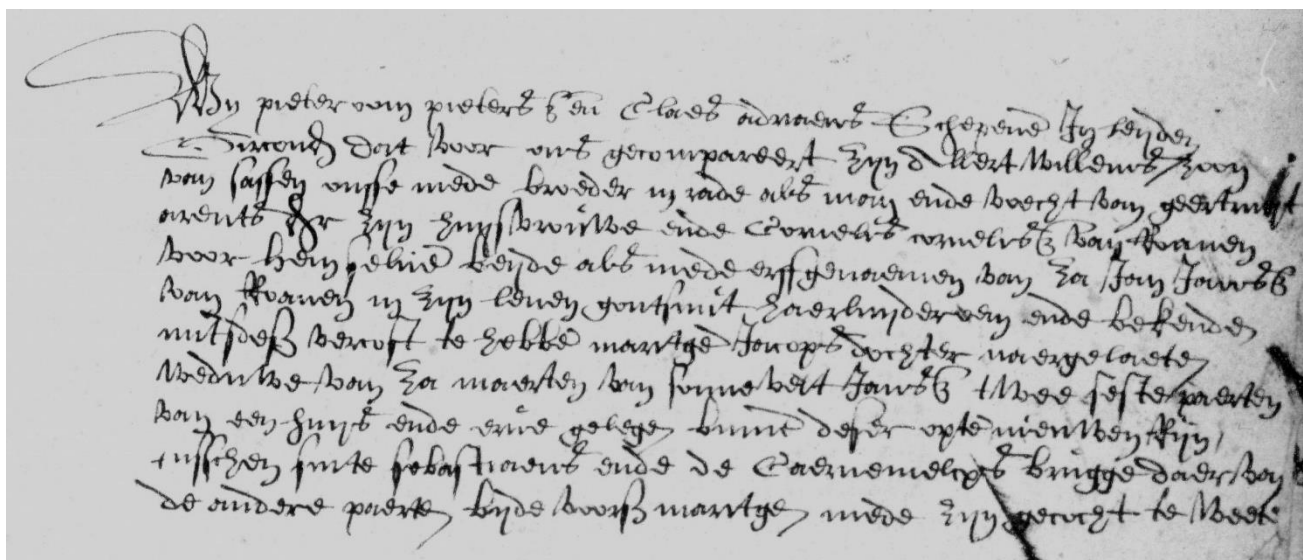 Wy pieter vom pieters z en Claes adriaens Schepene In leyden
Oirconden dat voor ons gecompareert zyn Allert Willems zoon
van sassen onsse mede broeder in rade als man ende voecht van geertruyt
arents dr zyn huysvrouwe ende Cornelis cornelisz van Roanen
voor hem selve beyde als mede erffgenaemen van za Jan Jansz
van Roanen in zyn leven goutsmit haerluyder oem ende bekende
mitsdesen vercoft te hebbe maritge Jacops dochter naergelaete
weduwe van za maerten van sonnevelt Jansz twee seste paerten
van een huys ende erve gelegen binne deser opte nieuwen Ryn
tusschen sinte sebastiaens ende de Caernemelcxs brugge daer van
de andere paerten byde voorsz maritgen mede zyn gecocht te weete